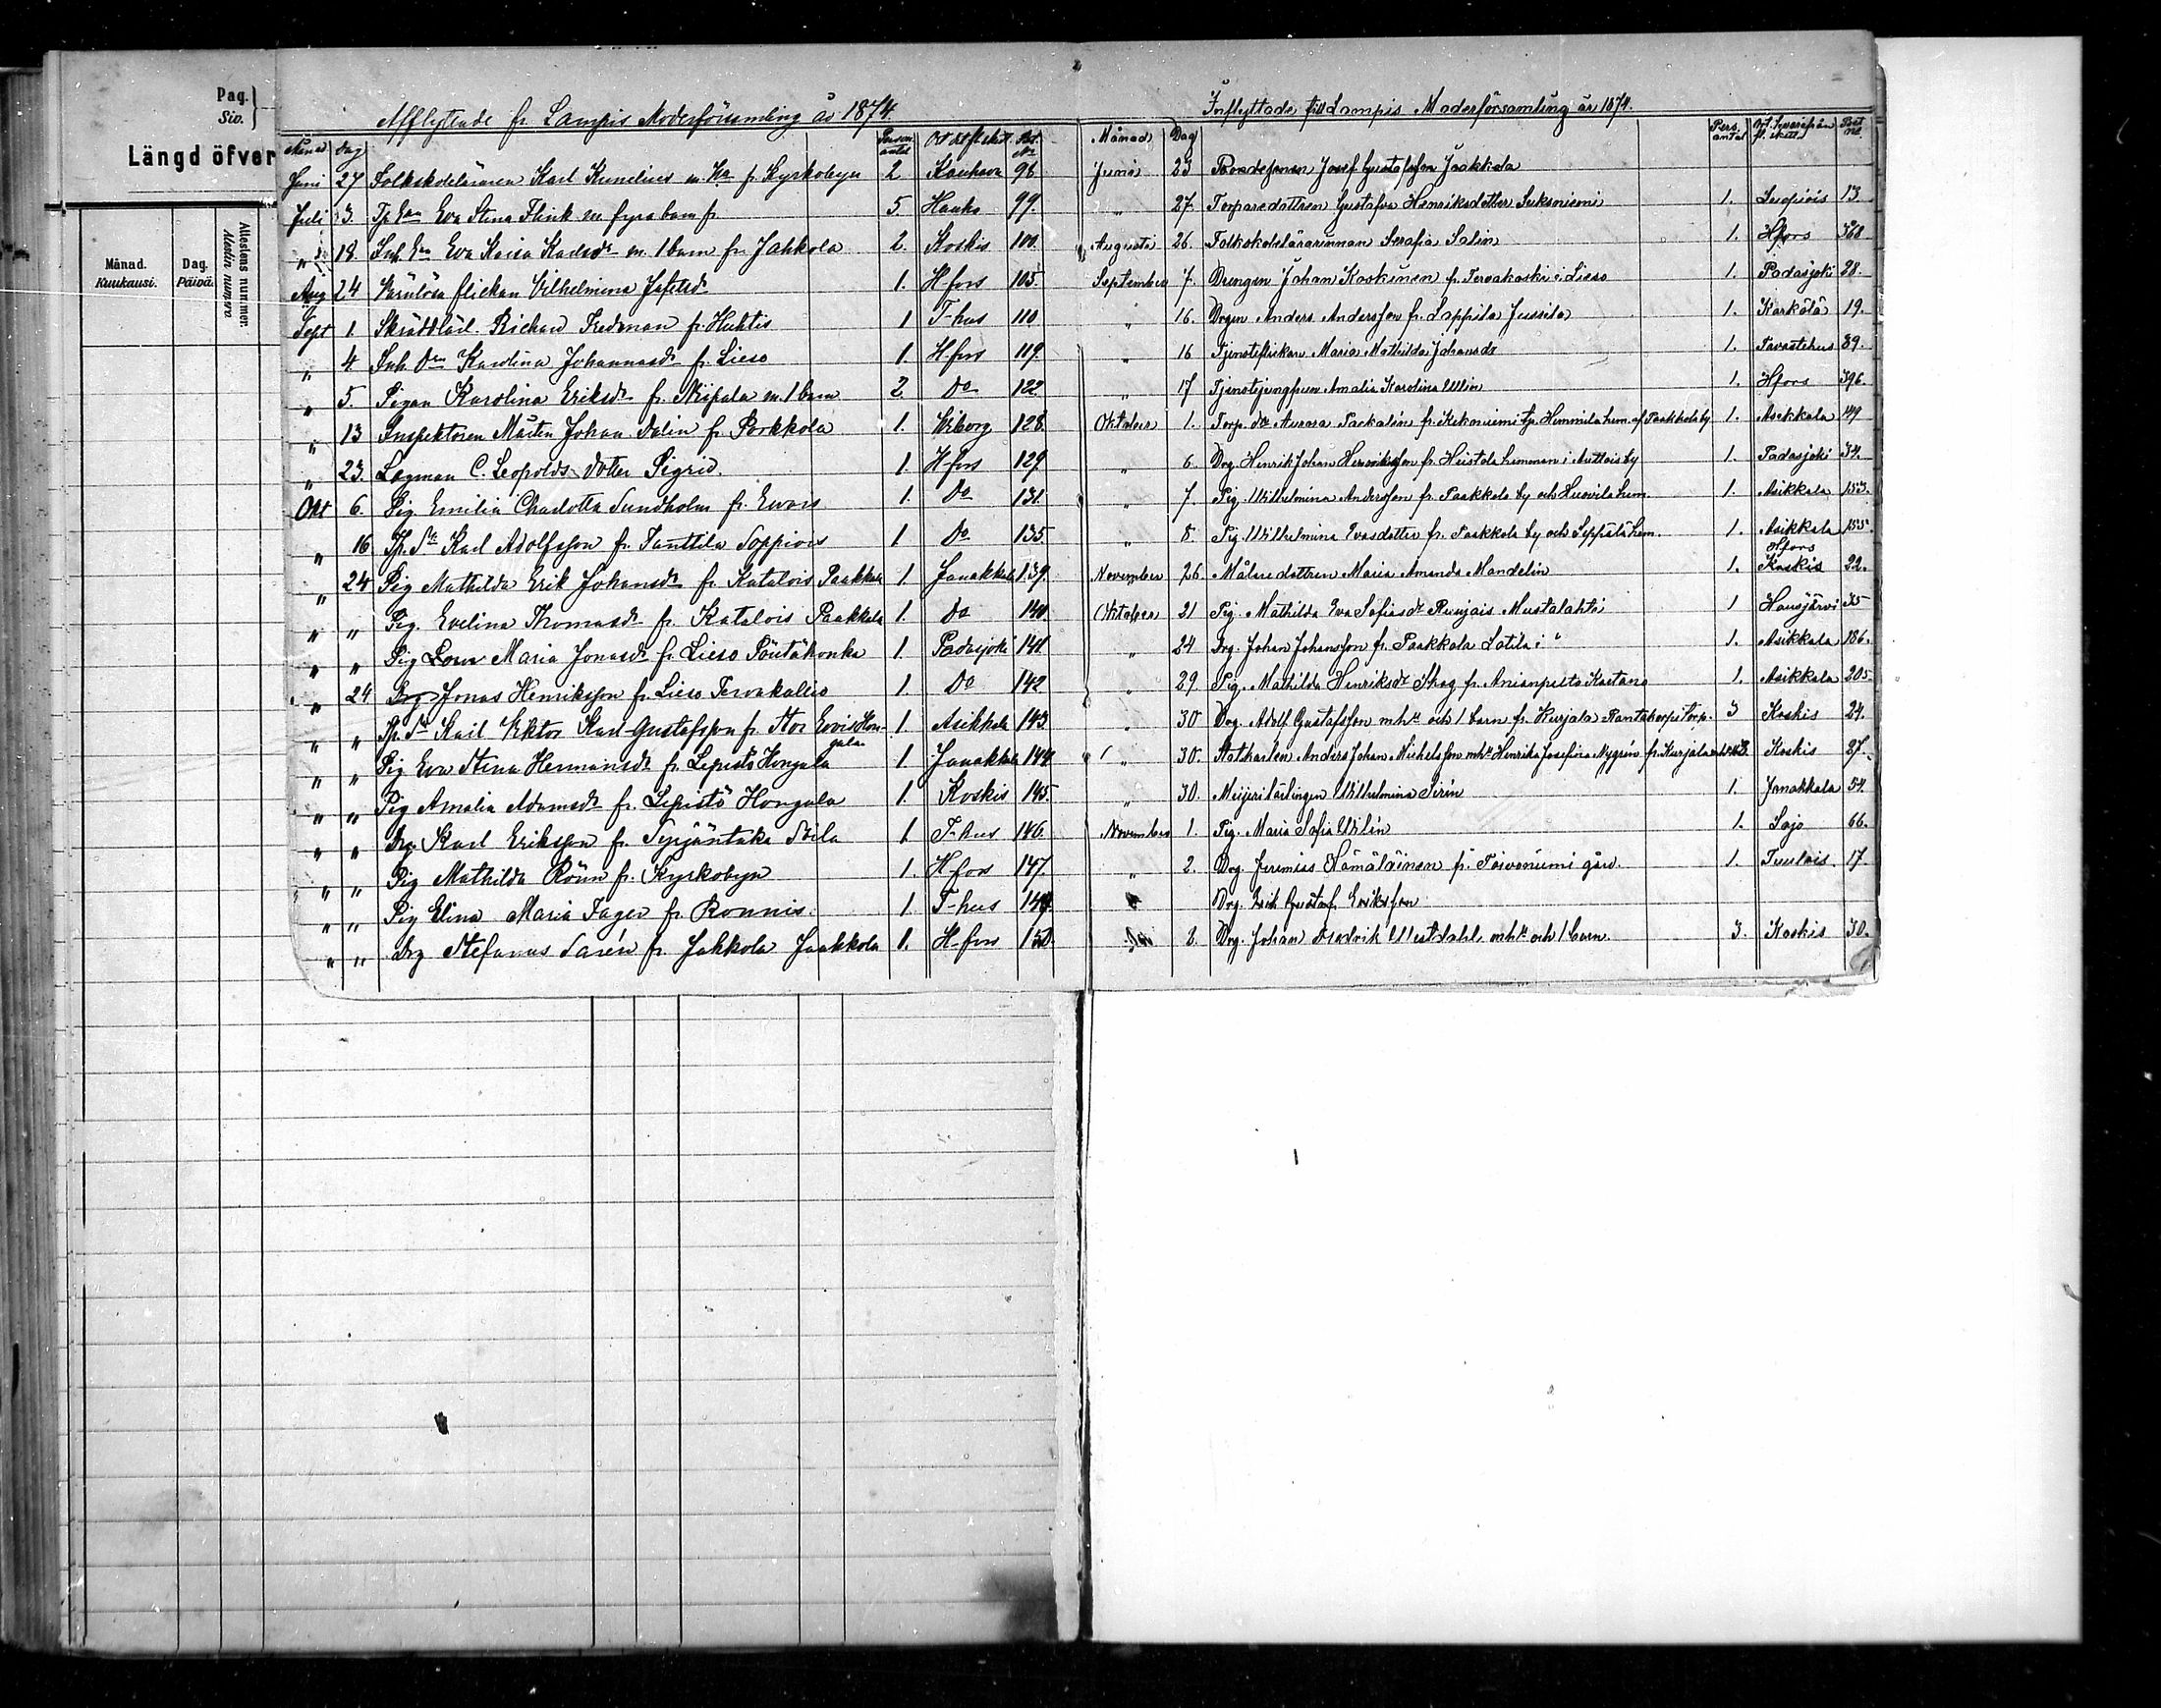 Pag.
Siv.
Längd öfver
Månad.
Kuukausi.
Dag.
Päivä.
Attestens nummer.
Attestin numero
Afflyttade fr. Lampis Moderförsamling år 1874.
Månad Dag Person antal Ort dit flyttat Bet. No
Juni 27 Folkskoleläraren Karl Kunelius m. Ha fr. Kyrkobyn 2 Kauhava 96
Juli 3. Tp. Ean Eva Stina Flink m fyra barn fr 5. Hauho 99.
" 18. Inh. Ean Eva Kaisa Karlsdr m. 1 barn fr. Jahkola 2. Koskis 100.
Aug 24 Värnlösa flickan Vilhelmina Jafetsdr 1. H-fors 105.
Sept 1. Skräddläil. Richard Fredman fr. Huhtis 1 T-hus 110
" 4 Inh. Drn Karolina Johannasdr fr. Lieso 1. H.fors 119.
" 5. Pigan Karolina Eriksdr fr. Nipala m. 1 barn 2 Do 122.
" 13 Inspektoren Mårten Johan Dalin fr. Porkkola 1. Wiborg 128.
" 23. Lagman C. Leopolds dotter Sigrid. 1. H.fors 129.
Okt 6. Pig. Emilia Charlotta Sundholm fr. Evois 1. Do 131.
" 16 Tp. Sn Karl Adolfsson fr. Tanttila Soppiois 1 Do 135.
" 24 Pig Mathilda Erik Johansdr fr. Katalois Paakkola 1 Janakkala 139.
" " Pig. Evelina Thomasdr fr. Katalois Paakkola 1. Do 140
" " Pig Lovisa Maria Jonasdr fr. Lieso Pöntähonka 1. Padasjoki 141.
" 24 Drg Jonas Henriksson fr. Lieso Tervakallio 1. Do 142
" " Tp. Sn Karl Viktor Karl-Gustafsson fr. Stor Evois Hongala 1. Asikkala 143.
" " Pig Eva Stina Hermansdr fr. Lepistö Hongala 1 Janakkala 144
" " Pig Amalia Adamsdr fr. Lepistö Hongala 1. Koskis 145.
" " Drg. Karl Eriksson fr. Syrjäntaka Stila 1 T-hus 146.
" " Pig Mathilda Rönn fr. Kyrkobyn 1. H.fors 147.
" " Pig Elina Maria Jager fr. Ronnis. 1. T-hus 149.
" " Drg Stefanus Sarén fr. Jahkola Jaakkola 1. H-fors 150.
Inflyttade till Lampis Moderförsamling år 1874.
Månad Dag Pers. antal Ort hvarifrån fl. skett Bet No
Juni 23 Bondesonen Josef Gustafsson Jaakkola
" 27. Torparedottren Gustafva Henriksdotter Suksenniemi 1. Luopiois 13
Augusti 26. Folkskolelärarinnan Serafia Salin 1. Hfors 368
September 7. Drengen Johan Koskinen fr. Tervakoski i Lieso 1. Padasjoki 28.
" 16. Drgen Anders Andersson fr. Lappila Jussila 1. Kärkölä 19.
" 16 Tjensteflickan Maria Mathilda Johansdr 1. Tavastehus 89.
" 17 Tjenstejungfrun Amalia Karolina Ullin 1. Hfors 396.
Oktober 1. Torp. dr Aurora Packalén fr. Kekoniemi tp. Hemmila hem. af Paakkola by 1. Asikkala 149
" 6. Drg. Henrik Johan Henriksson fr. Heistola hemman i Auttois by 1. Padasjoki 34.
" 7. Pig. Wilhelmina Andersson fr. Paakkola by och Huovila hem. 1. Asikkala 153.
" 8. Pig. Wilhelmina Evasdotter fr. Paakkola by och Seppälä hem. 1. Asikkala 155.
Hfors
November 26. Målaredottren Maria Amanda Mandelin 1. Koskis 22.
Oktober 21 Pig. Mathilda Eva Sofiasdr Runjais Mustalahti 1 Hausjärvi 35
" 24 Drg. Johan Johansson fr. Paakkola Latila i " 1. Asikkala 186.
" 29 Pig. Mathilda Henriksdr Skog fr. Anianpelto Kastana 1. Asikkala 205
" 30 Drg. Adolf Gustafsson mhu och 1 barn fr. Kurjala Rantakorpi torp. 3 Koskis 24.
" 30. Statkarlen Anders Johan Mickelsson mhu Henrika Josefina Nygrén fr. Kurjala 3. Koskis 27.
" 30. Meijerilärlingen Wilhelmina Sirén 1. Janakkala 54.
November 1. Pig. Maria Sofia Wilén 1. Lojo 66.
" 2. Drg. Jeremias Hämäläinen fr. Toivoniemi gård. 1. Tuulois 17.
Drg. Erik Gustaf Eriksson
Do 3. Drg. Johan Fredrik Westdahl mhu och 1 barn. 3. Koskis 30.